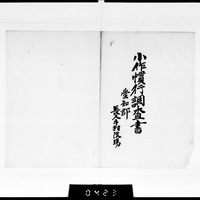 小作慣行調査書
愛知郡
長久手村役場
0423